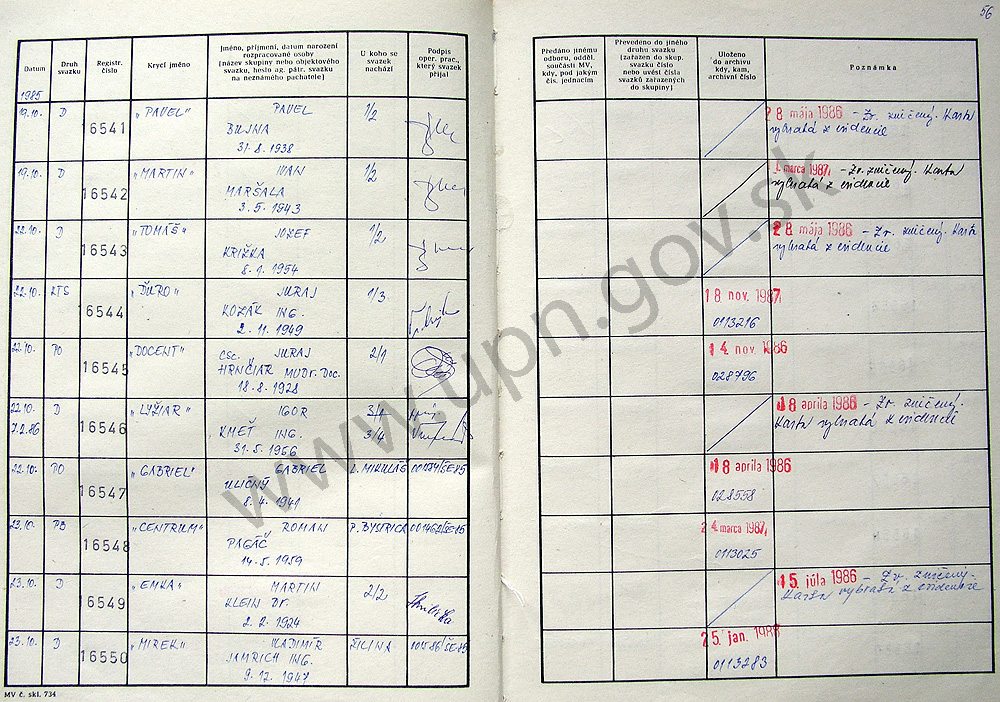 56
Datum
Druh svazku
Registr. číslo
Krycí jméno
Jméno, příjmení, datum narození
rozpracované osoby
(název skupiny nebo objektového
svazku, heslo ag. pátr. svazku
na neznámého pachatele)
U koho se
svazek
nachází
Podpis
oper. prac.,
který svazek
přijal
Předáno jinému
odboru, odděl.
součásti MV,
kdy, pod jakým
čís. jednacím
Převedeno do jiného
druhu svazku
(zařazen do skup.
svazku číslo
nebo uvést čísla
svazků zařazených
do skupiny)
Uloženo
do archivu
kdy, kam,
archivní číslo
Poznámka
1985
19.10. D 16541 "PAVEL" PAVEL 1/2
BUJNA
31.8.1938
28 mája 1986 - Zv. zničený. Karta
vybratá z evidencie
19.10. D 16542 "MARTIN" IVAN 1/2
MARŠALA
3.5.1943
marca 1987 - Zv. zničený. Karta
vybratá z evidencie
22.10. D 16543 "TOMÁŠ" JOZEF 1/2
KRIŽKA
8.1.1954
28 mája 1986 - Zv. zničený. Karta
vybratá z evidencie
22.10. KTS 16544 "ĎURO" JURAJ 1/3
KOZÁK ING.
2.11.1949
18 nov. 1987
0113216
22.10. PO 16545 "DOCENT" CSc. JURAJ 2/1
HRNČIAR MUDr. Doc.
18.8.1928
14. nov. 1986
028796
22.10. D 16546 "LYŽIAR" IGOR 3/1
7.2.86 KMEŤ ING. 3/4
31.5.1966
18 apríla 1986 - Zv. zničený.
Karta vybratá z evidencie
22.10. PO 16547 "GABRIEL" GABRIEL L. MIKULÁŠ
ULIČNÝ
8.4.1941
18 apríla 1986
028558
23.10. PB 16548 "CENTRUM" ROMAN P. BYSTRICA
PAGÁČ
14.5.1959
24 marca 1987
0113025
23.10. D 16549 "EMKA" MARTIN 2/2
KLEIN Dr.
2.2.1924
15. júla 1986 - Zv. zničený.
Karta vybratá z evidencie
23.10. D 16550 "MIREK" VLADIMÍR ŽILINA
JAMRICH ING.
9.12.1947
25. jan. 1988
0113283
MV č. skl. 734
www.upn.gov.sk